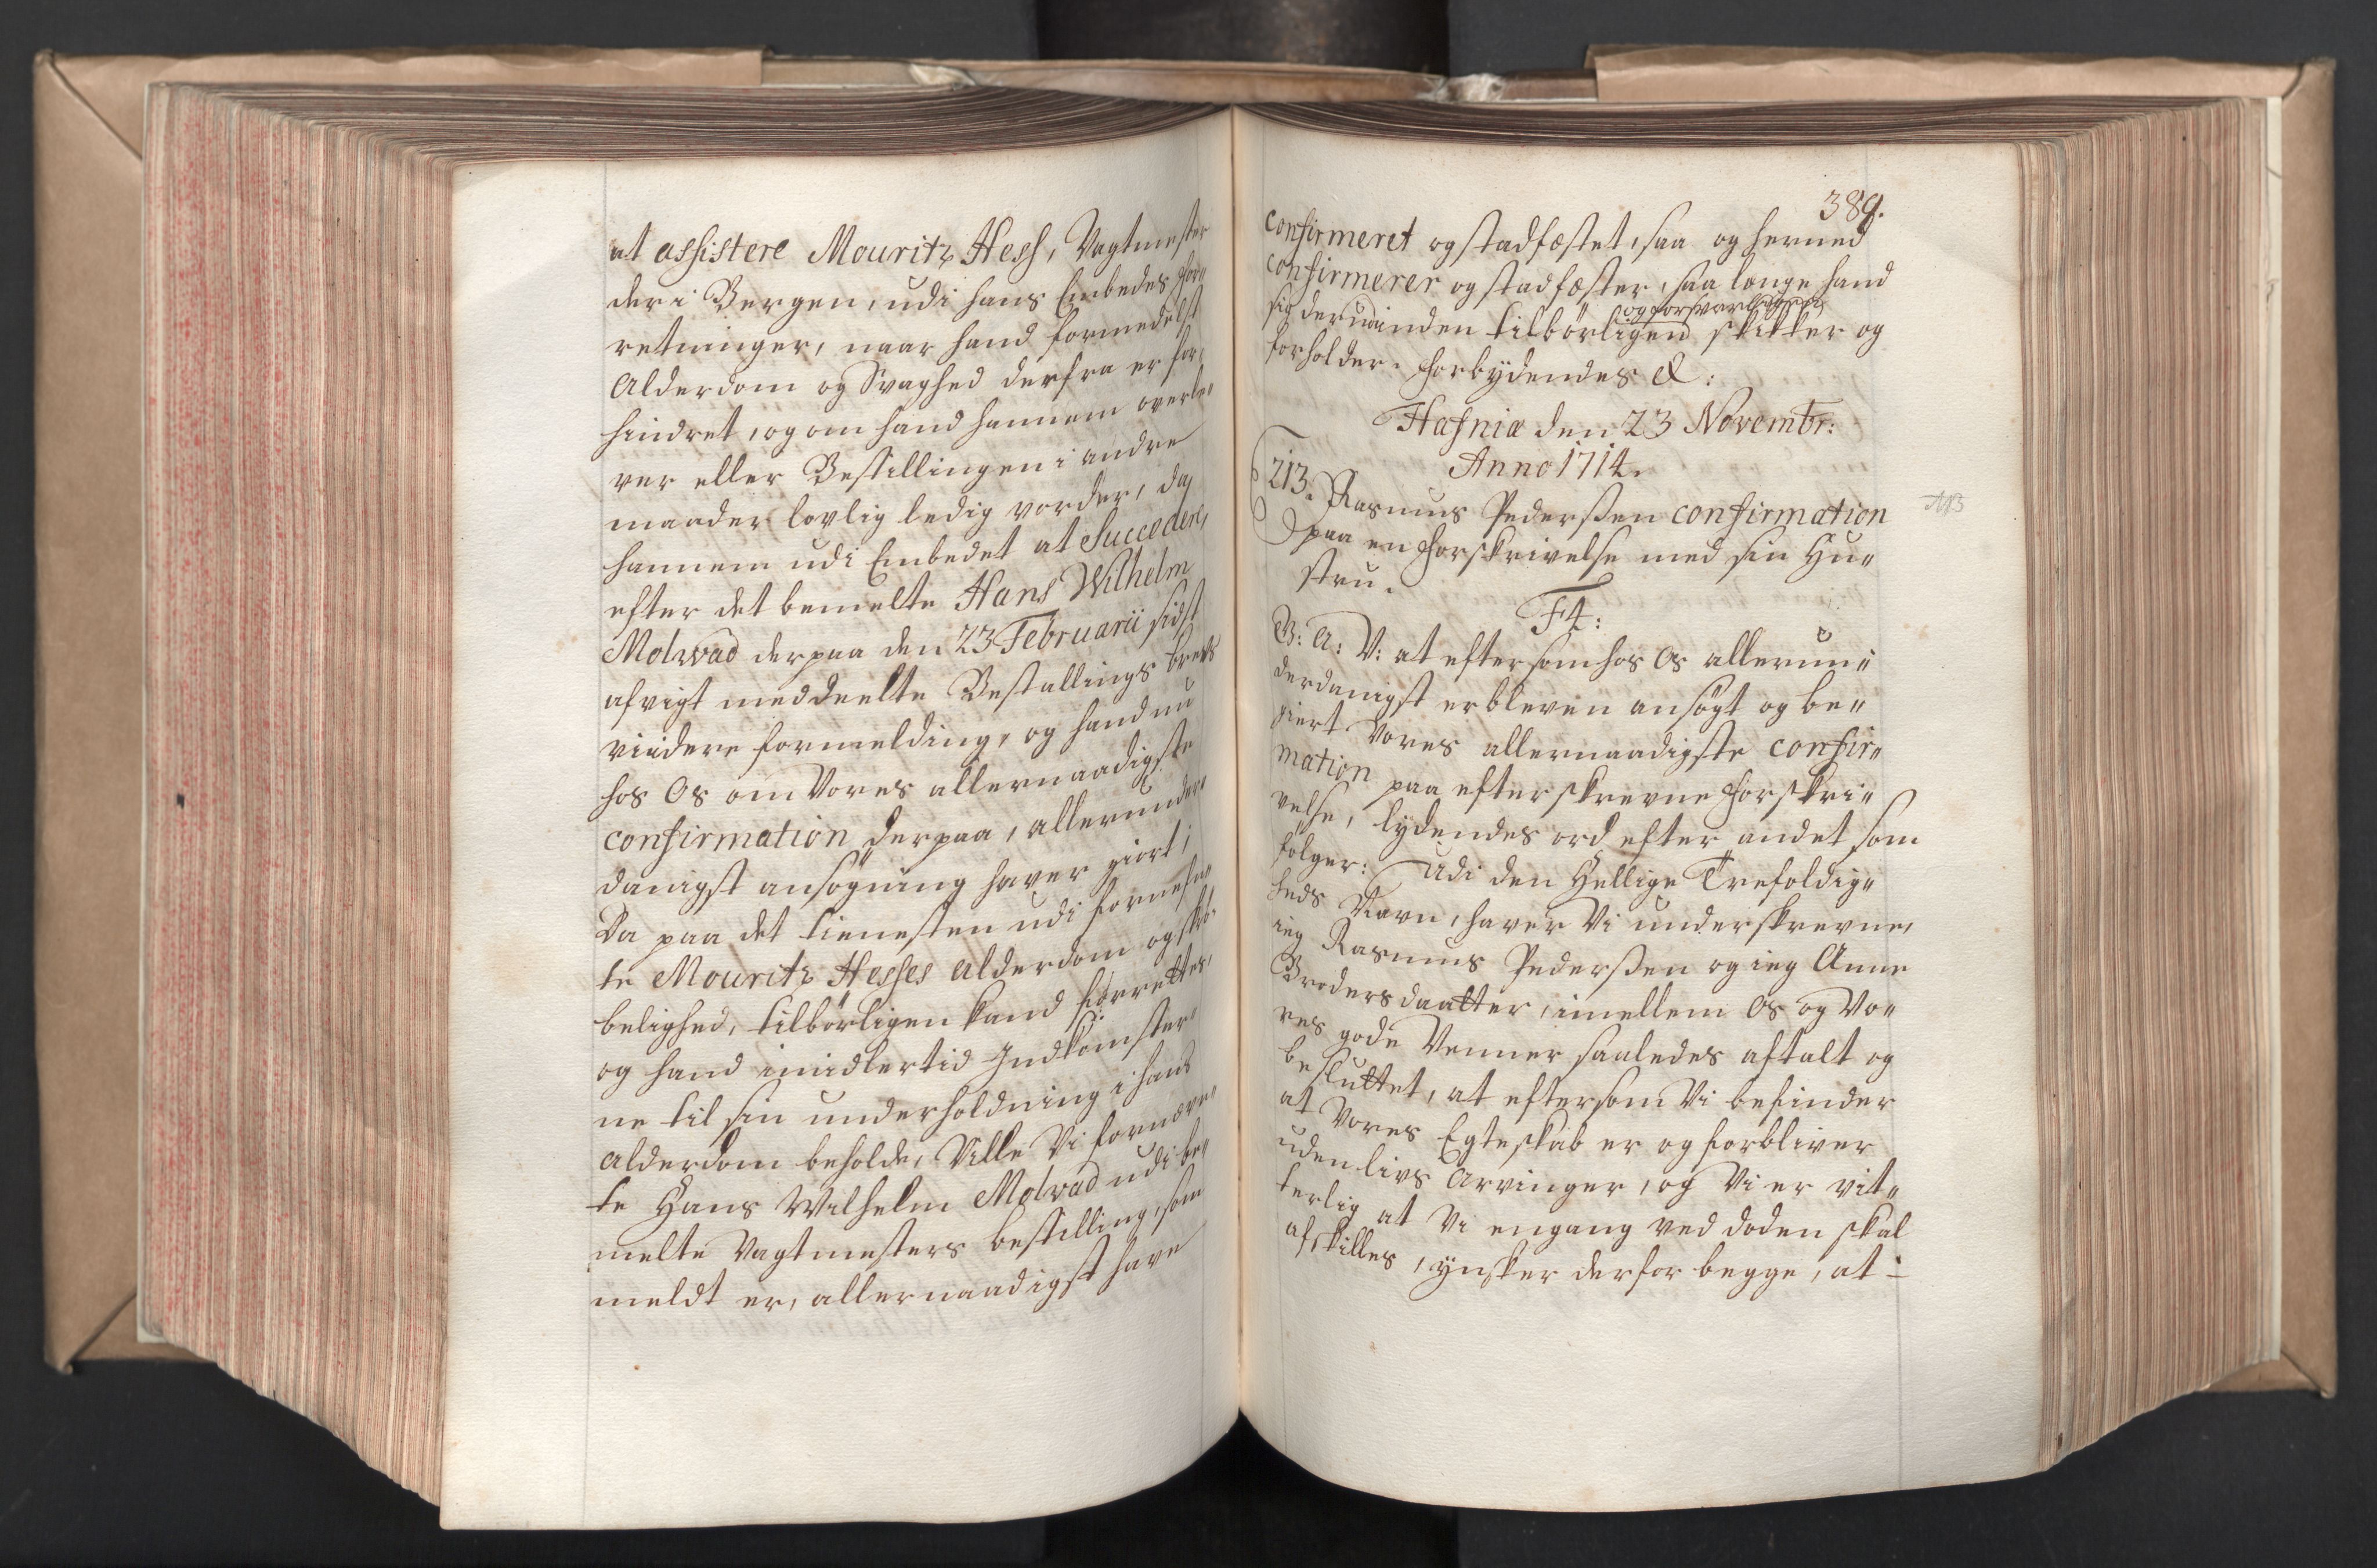 at assistere Mouritz Hess, Vagtmester
der i Bergen, udi hans Embedes for-
retninger, naar hand formedelst
Alderdom og Svaghed derfra er for-
hindret, og om hand hannem overle-
ver eller Bestillingen i andre
maader lovlig ledig vorder, da
hannem udi Embedet at Succedere,
efter det bemelte Hans Wilhelm
Molwad derpaa den 23 Februarii sidst
afvigt meddeelte Bestallings brevs
viidere formelding, og hand nu
hos Os om Vores allernaadigste
confirmation derpaa, allerunder-
danigst ansøgning haver giort;
Da paa det tienesten udi fornefn-
te Mouritz Hesses alderdom og skrø-
belighed, tilbørligen kand forrettes,
og hand imidlertid Indkomster-
ne til sin underholdning i hans
alderdom beholde, Ville Vi fornævn-
te Hans Wilhelm Molvad udi be-
melte Vagtmesters bestilling, som
meldt er, allernaadigst have
389.
confirmeret og stadfæstet, saa og hermed
confirmerer og stadfæster, saa længe hand
og forsvarligen
sig derudinden tilbørligen skikker og
forholder. Forbydendes &:
Hafniæ den 23 Novembr:
Anno 1714.
213. Rasmus Pederssen confirmation
paa en Forskrivelse med sin Hu-
stru.
F4:
G: A: V: at eftersom hos Os allerun-
derdanigst er bleven ansøgt og be-
giert Vores allernaadigste confir-
mation paa efterskrevne Forskri-
velse, lydendes ord efter andet som
følger: Udi den Hellige Trefoldig-
heds Navn, haver Vi underskrevne,
ieg Rasmus Pederssen og ieg Anne
Brodersdaatter, imellem Os og Vo-
res gode Venner saaledes aftalt og
besluttet, at eftersom Vi befinder
at Vores Egteskab er og forbliver
uden livs Arvinger, og Vi er vit-
terlig at Vi engang ved døden skal
afskilles, ynsker derfor begge, at -